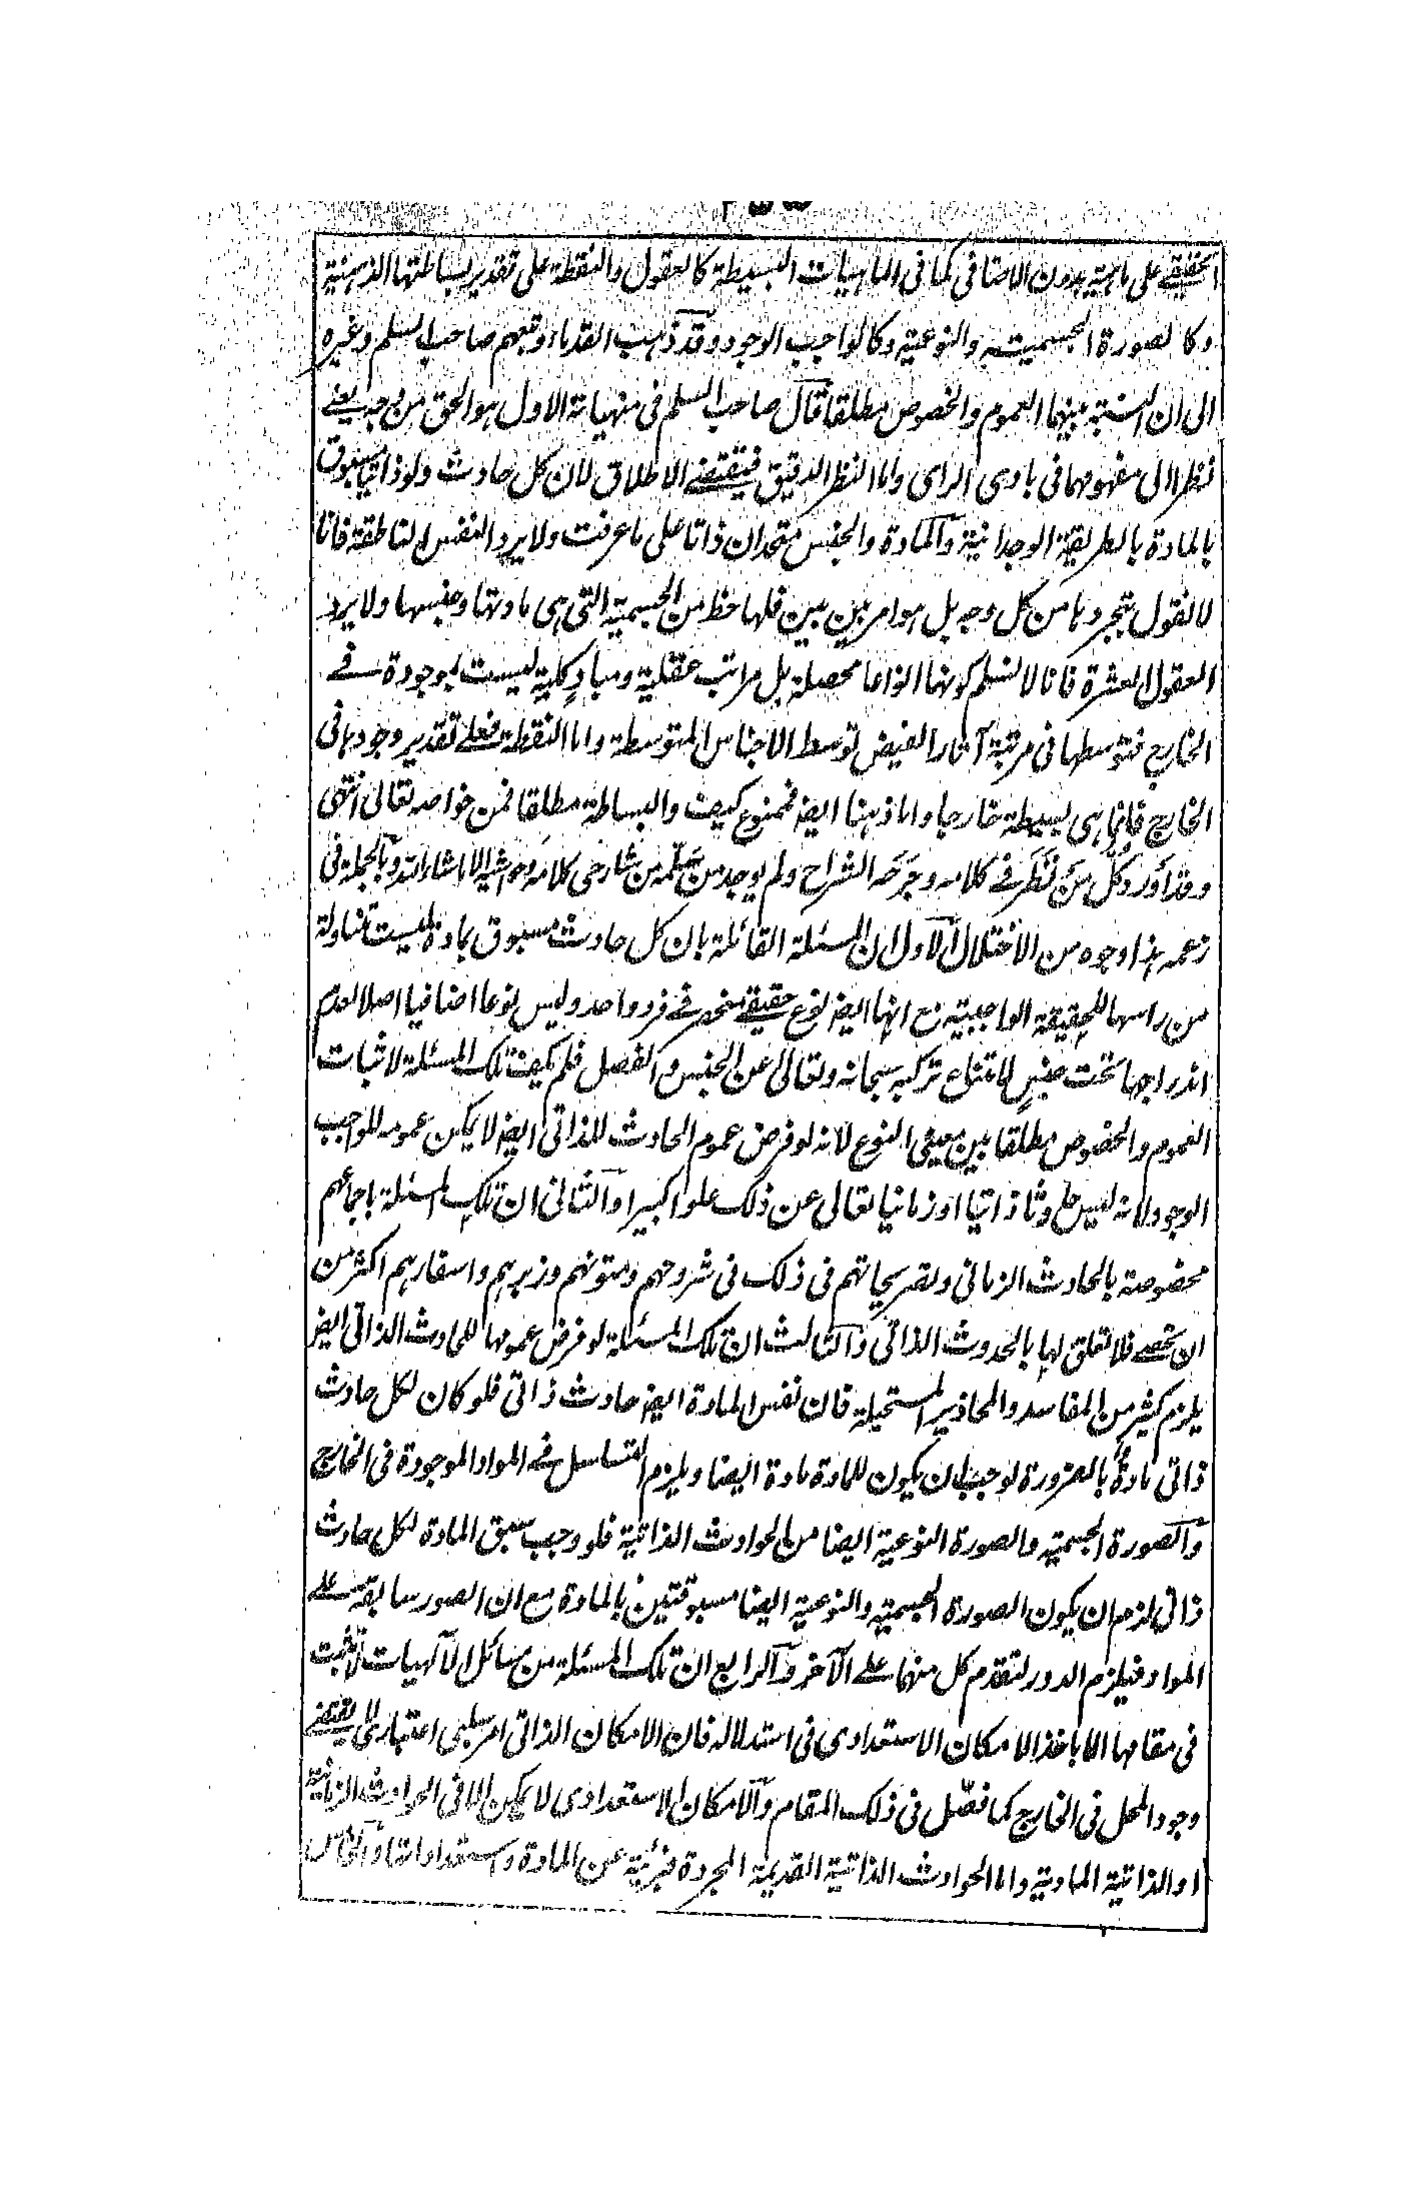 الحقيقے على ماهية بدون الاضافى كما فى الماهيات البسيطة كالعقول والنقطة على تقدير بساطتها الذهنية
وكالصورة الجسمية والنوعية وكالواجب الوجود وقد ذهب القدماء وتبعهم صاحب السلم وغيره
الى ان النسبة بينهما العموم والخصوص مطلقا قال صاحب السلم فى منهياته الاول هو الحق من وجه يعنے
نظرا الى مفهومهما فى بادى الراى واما النظر الدقيق فيقتضے الاطلاق لان كل حادث ولو ذاتيا مسبوق
بالمادة بالطريقة الوجدانية والمادة والجنس متحدان ذاتا على ما عرفت ولا يرد النفس الناطقة فانا
لا نقول بتجردها من كل وجه بل هو امر بين بين فلها حظ من الجسمية التى هى مادتها وجنسها ولا يرد
العقول العشرة فانا لا نسلم كونها انواعا محصلة بل مراتب عقلية ومبادٍ كلية ليست بموجودة فے
الخارج فتوسطها فى مرتبة آثار الفيض توسط الاجناس المتوسطة واما النقطة فعلے تقدير وجودها فى
الخارج فانما هى بسيطة خارجا واما ذهنا ايضا فممنوع كيف والبساطة مطلقا فمن خواصه تعالى انتهى
وقد اورد كل من نظر فے كلامه وجرحه الشراح ولم يوجد من سلمه من شارحى كلامه ومحشيه الا ما شاء الله وبالجملة فى
زعمه هذا وجوه من الاختلال الاول ان المسئلة القائلة بان كل حادث مسبوق بمادة ليست متناولة
من راسها للحقيقة الواجبية مع انها ايضا نوع حقيقے منحصر فے فرد واحد وليس نوعا اضافيا اصلا لعدم
اندراجها تحت جنسٍ لامتناع تركبه سبحانه وتعالى عن الجنس والفصل فلم تكف تلك المسئلة لاثبات
العموم والخصوص مطلقا بين معنيى النوع لانه لو فرض عموم الحادث للذاتى ايضا لا يمكن عمومه للواجب
الوجود لانه ليس حادثا ذاتيا او زمانيا تعالى عن ذلك علوا كبيرا والثانى ان تلك المسئلة باجماعهم
مخصوصة بالحادث الزمانى وتصريحاتهم فى ذلك فى شروحهم ومتونهم وزبرهم واسفارهم اكثر من
ان تحصے فلا تعلق لها بالحدوث الذاتى والثالث ان تلك المسئلة لو فرض عمومها للحادث الذاتى ايضا
يلزم كثير من المفاسد والمحاذير المستحيلة فان نفس المادة ايضا حادث ذاتى فلو كان لكل حادث
ذاتى مادةٌ بالضرورة لوجب ان يكون للمادة مادة ايضا ويلزم التسلسل فے المواد الموجودة فى الخارج
والصورة الجسمية والصورة النوعية ايضا من الحوادث الذاتية فلو وجب سبق المادة لكل حادث
ذاتى لزم ان يكون الصورة الجسمية والنوعية ايضا مسبوقتين بالمادة مع ان الصور سابقة علے
المواد فيلزم الدور لتقدم كل منهما علے الآخر والرابع ان تلك المسئلة من مسائل الالهيات لا تثبت
فى مقامها الا باخذ الامكان الاستعدادى فى استدلاله فان الامكان الذاتى امر سلبى اعتبارى لا يقتضے
وجود المحل فى الخارج كما فصّل فى ذلك المقام والامكان الاستعدادى لا يمكن الا فى الحوادث الزمانية
او الذاتية المادية واما الحوادث الذاتية القديمة المجردة فبريّة عن المادة واستعداداتها والخامس